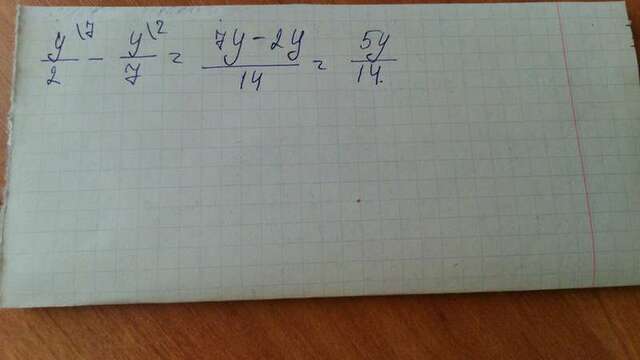 y\7/2 - y\2/7 = 7y-2y/14 = 5y/14.